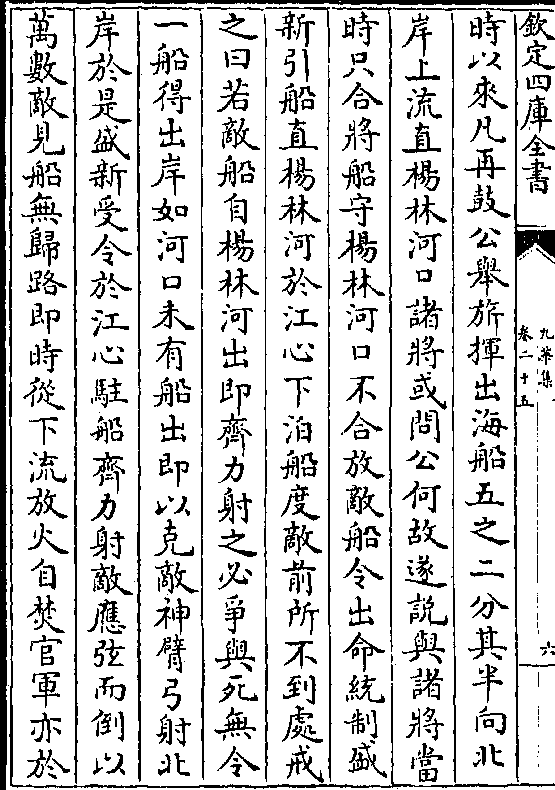 欽定四庫全書
九華集
卷二十五
六
時以來凡再鼓公舉旂揮出海船五之二分其半向北
岸上流直楊林河口諸將或問公何故遂説與諸將當
時只合將船守楊林河口不合放敵船令出命統制盛
新引船直楊林河於江心下泊船度敵前所不到處戒
之曰若敵船自楊林河出即齊力射之必爭與死無令
一船得出岸如河口未有船出即以克敵神臂弓射北
岸於是盛新受令於江心駐船齊力射敵應弦而倒以
萬數敵見船無歸路即時從下流放火自焚官軍亦於